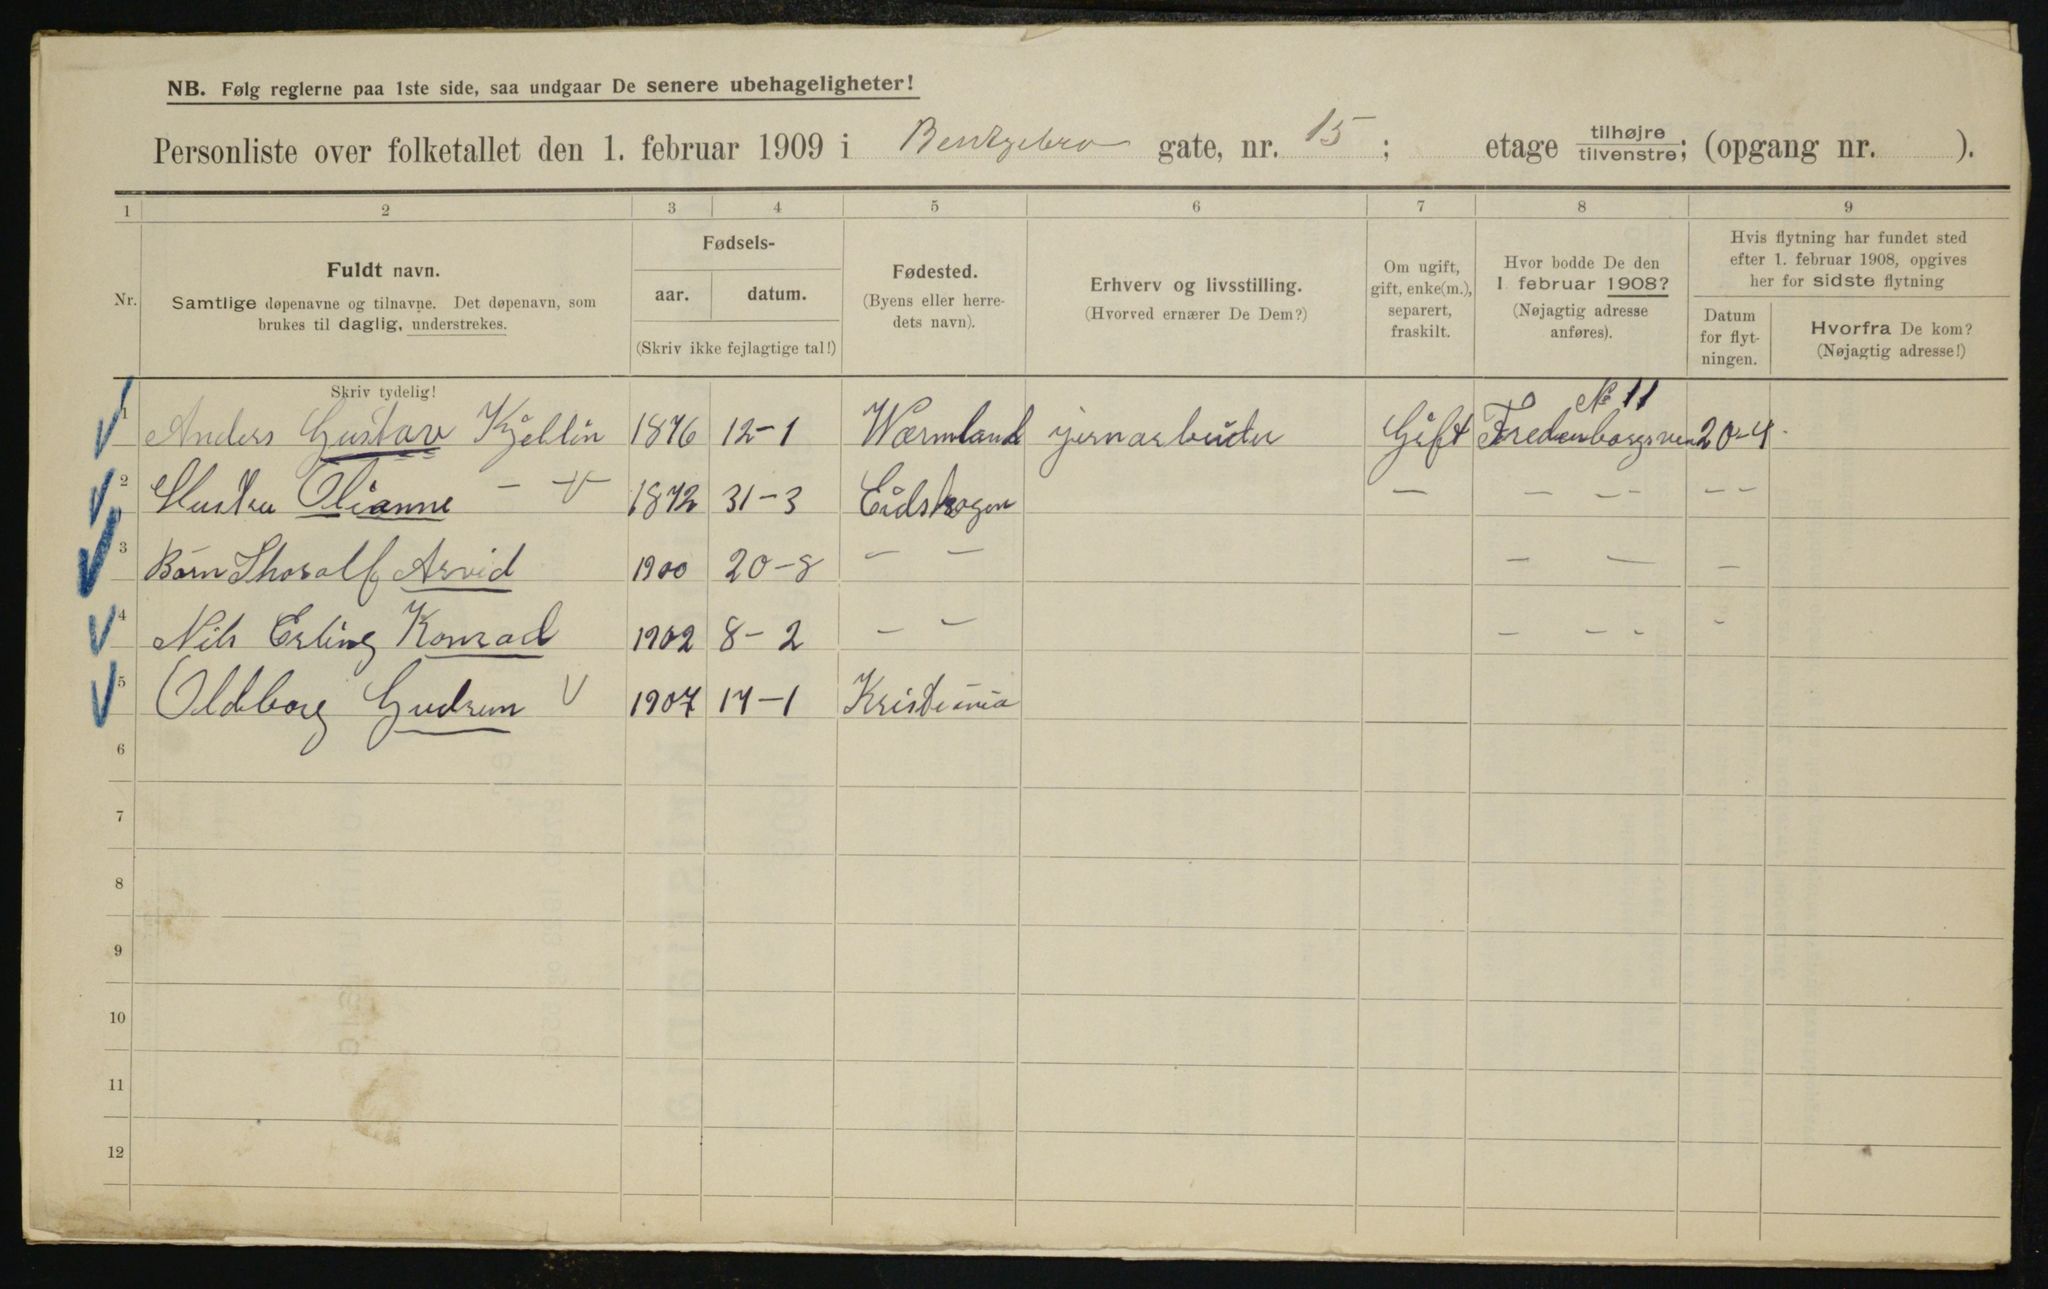 NB. Følg reglerne paa 1ste side, saa undgaar De senere ubehageligheter!
Personliste over folketallet den 1. februar 1909 i Bentzebro gate, nr. 15; etage tilhøjre/tilvenstre; (opgang nr. ).
1 2 3 4 5 6 7 8 9
Nr.
Fuldt navn.
Samtlige døpenavne og tilnavne. Det døpenavn, som
brukes til daglig, understrekes.
Skriv tydelig!
Fødsels-
aar. datum.
(Skriv ikke fejlagtige tal!)
Fødested.
(Byens eller herre-
dets navn).
Erhverv og livsstilling.
(Hvorved ernærer De Dem?)
Om ugift,
gift, enke(m.),
separert,
fraskilt.
Hvor bodde De den
1. februar 1908?
(Nøjagtig adresse
anføres).
Hvis flytning har fundet sted
efter 1. februar 1908, opgives
her for sidste flytning
Datum
for flyt-
ningen.
Hvorfra De kom?
(Nøjagtig adresse!)
No 11
1 Anders Gustav Kjellin 1876 12-1 Wærmland jernarbeider Gift Fredenborgsvei 20-4
2 Hustru Olianne — 1872 31-3 Eidskogen — — — — — —
3 Børn Thoralf Arvid 1900 20-8 — — — — —
4 Nils Erling Konrad 1902 8-2 — — — — - -
5 Oldborg Gudrun 1907 17-1 Kristiania
6
7
8
9
10
11
12